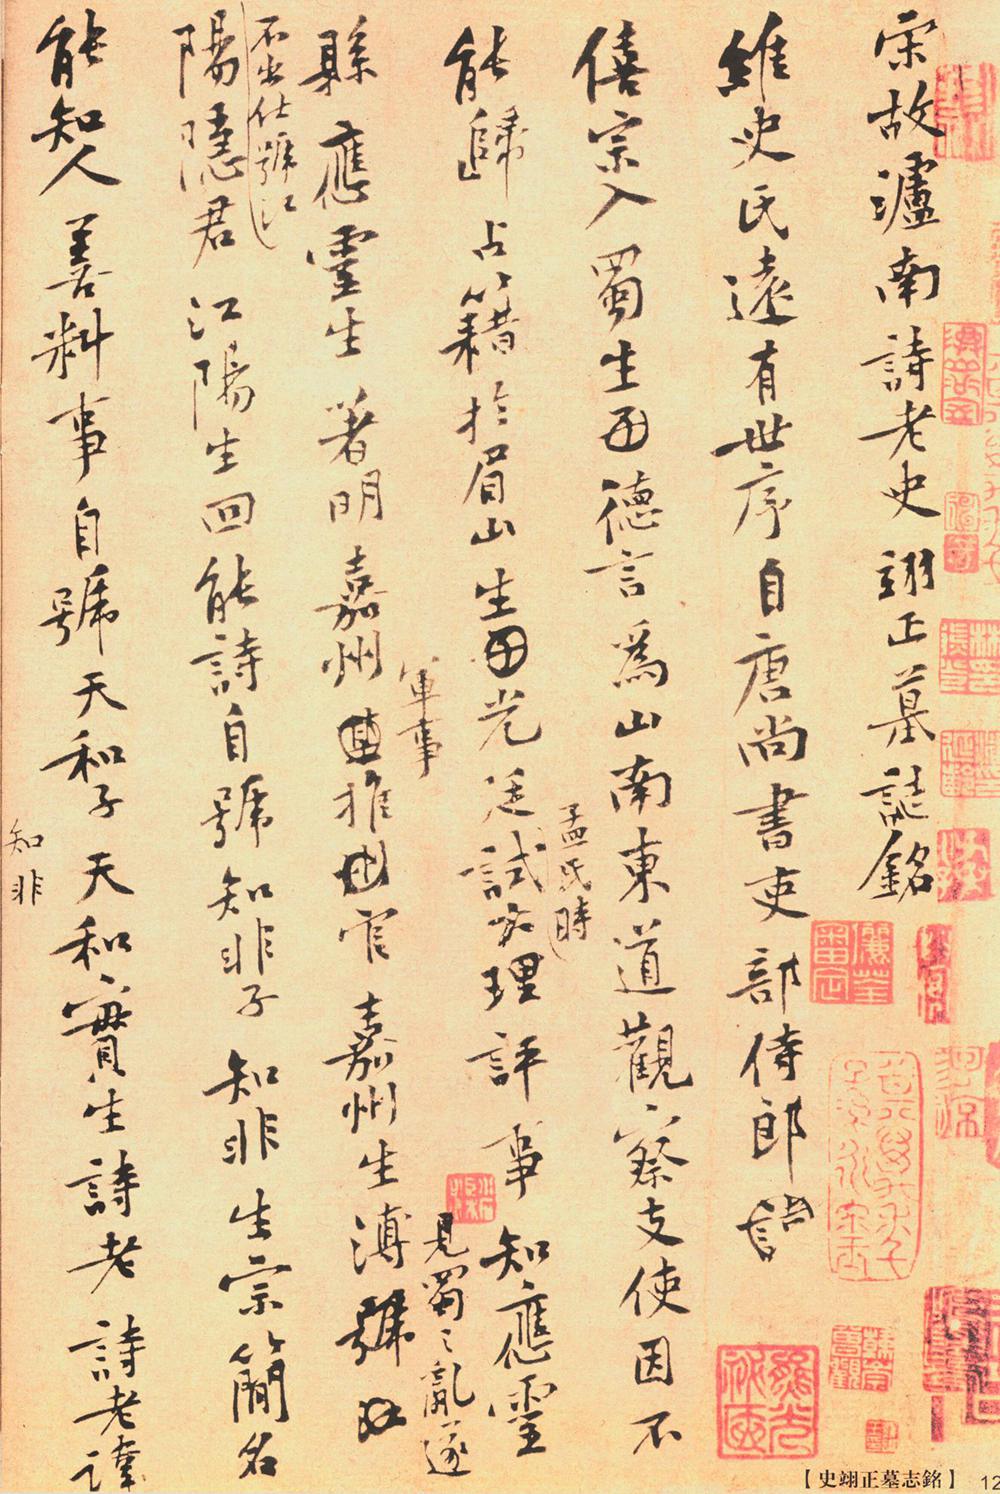 宋故瀘南詩老史翊正墓誌銘
維史氏遠有世序自唐尚書吏部侍郎
僖宗入蜀生德言爲山南東道觀察支使因不
孟氏時
能歸占籍於眉山生光廷試大理評事知應靈
見蜀之亂遂
軍事
縣應靈生著明嘉州推官嘉州生溥
不出仕號江
陽隱君江陽生回能詩自號知非子知非生宗簡名
能知人善料事自號天和子天和實生詩老詩老諱
知非
【史翊正墓志銘】
12